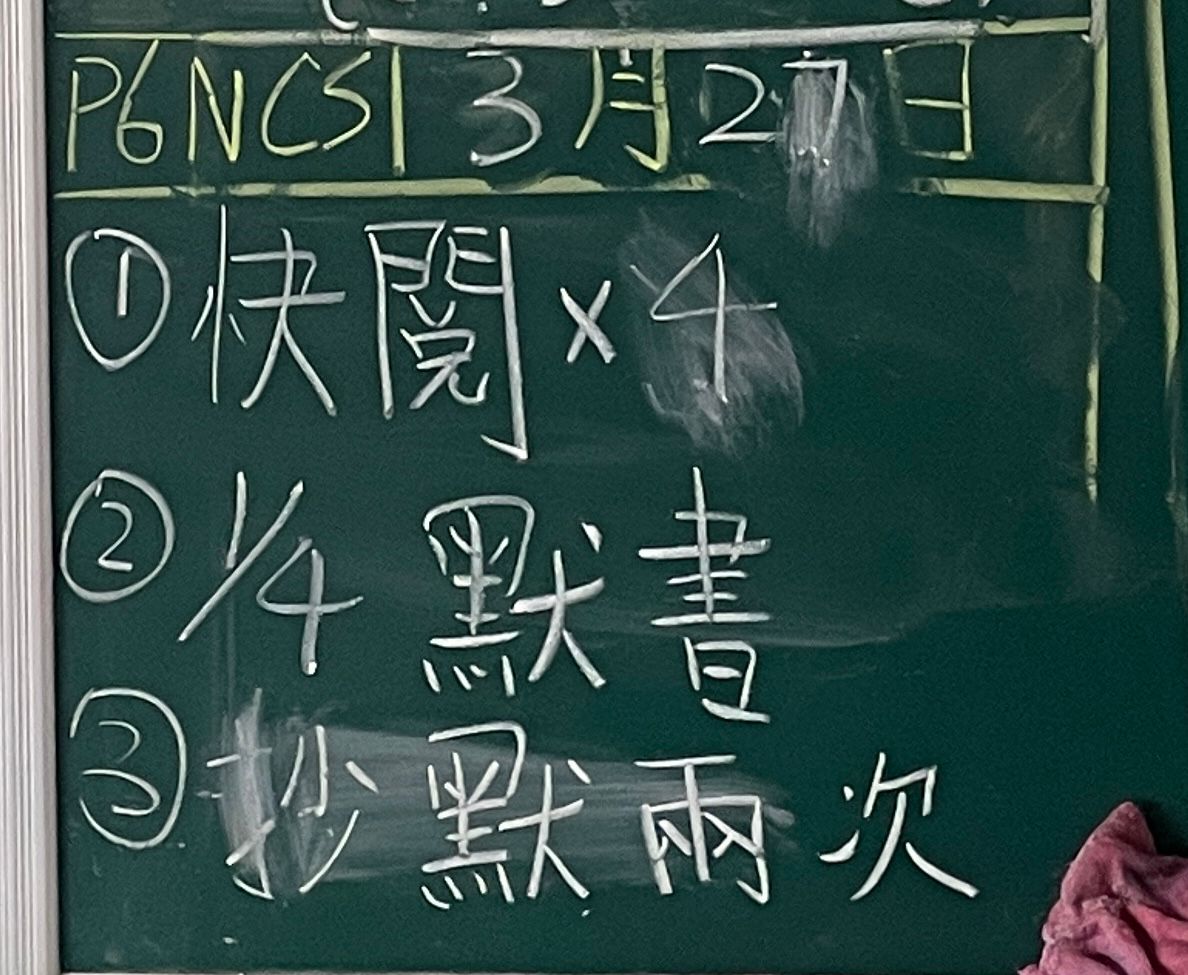 P6NCS 3月27日
① 快閱×4
② 1/4 默書
③ 抄默兩次